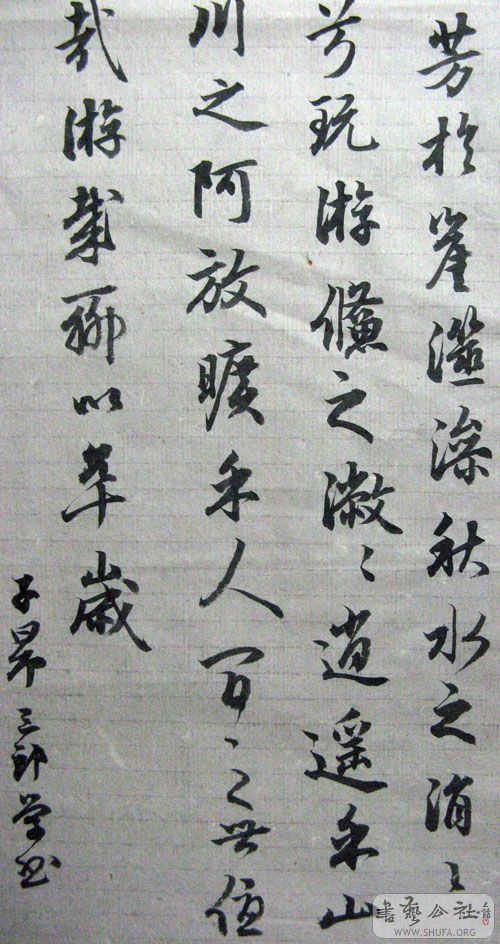 芳於崖澨澡秋水之涓〻
兮玩游儵之潎〻逍遥乎山
川之阿放曠乎人間之世優
哉游哉聊以卒歲
子昂 三郎学书
書藝公社
WWW.SHUFA.ORG